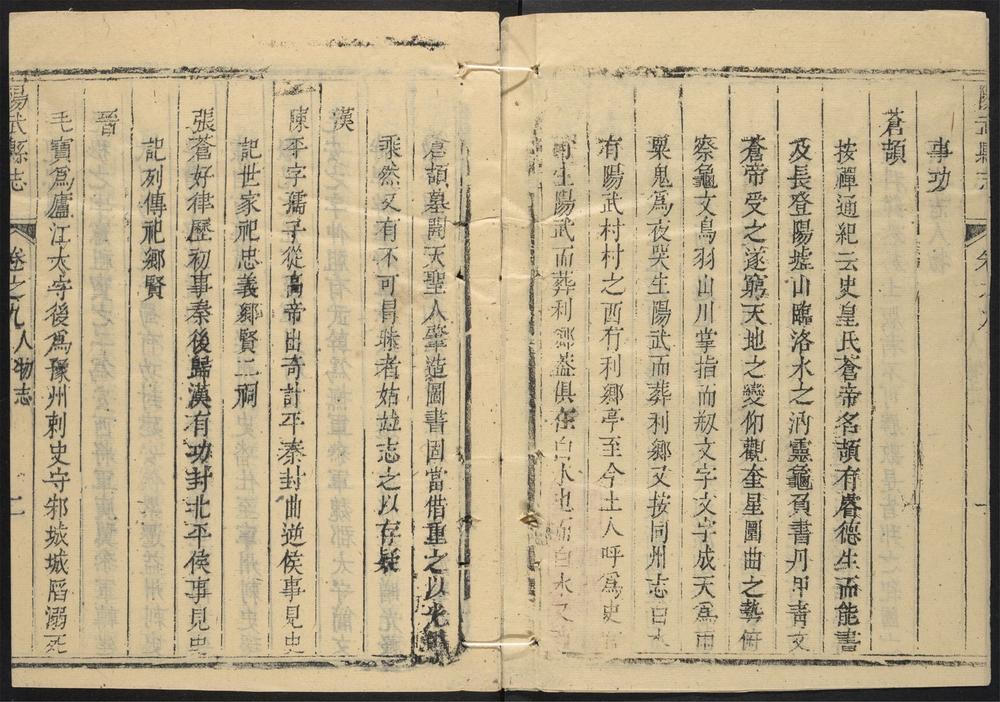 事功
蒼頡
按禪通紀云史皇氏蒼帝名頡有睿德生而能書
及長登陽墟山臨洛水之汭靈龜負書丹甲青文
蒼帝受之遂窮天地之變仰觀奎星圜曲之勢俯
察龜文鳥羽山川掌指而刱文字文字成天為雨
粟鬼為夜哭生陽武而葬利鄉又按同州志白水
有陽武村村之西有利鄉亭至今土人呼為史官
生陽武而葬利鄉蓋俱在白水也而白水又
倉頡墓開天聖人肇造圖書固當借重之以光
乘然又有不可冐昧者姑竝志之以存疑
漢
陳平字孺子從高帝出奇計平秦封曲逆侯事見史
記世家祀忠義鄉賢二祠
張蒼好律歷初事秦後歸漢有功封北平侯事見史
記列傳祀鄉賢
晉
毛寶為廬江太守後為豫州刺史守邾城城陷溺死
陽武縣志 卷之九 人物志 二